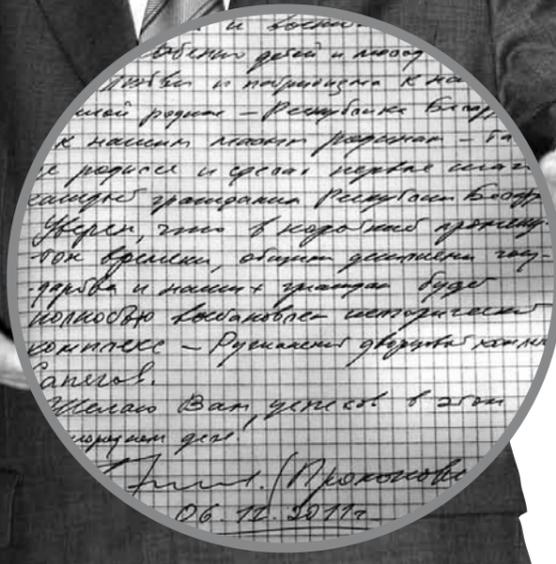 и воспи
особенно детей и молод
любви и патриотизма к на
шей родине – Республике Белар
к нашим малым родинам – Га
е родился и сделал первые шаги
каждый гражданин Республики Белару
Уверен, что в короткий промежу-
ток времени, общими усилиями госу-
дарства и наших граждан будет
полностью восстановлен исторический
комплекс – Ружанский дворцовый компле
Сапегов.
Желаю Вам, успехов в этом
благородном деле.
(Прокопови
06.12.2011г